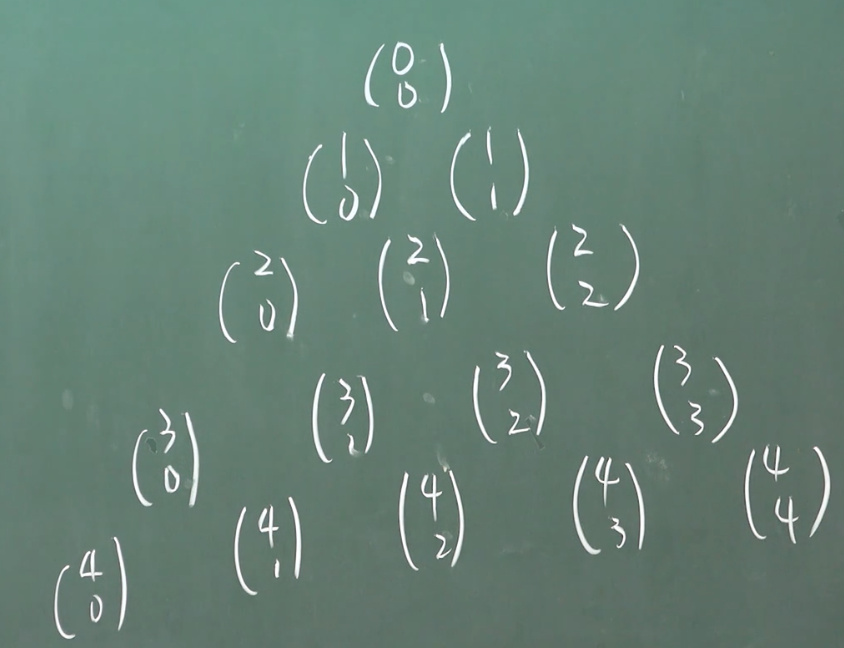 (0 0)
(1 0) (1 1)
(2 0) (2 1) (2 2)
(3 0) (3 2) (3 2) (3 3)
(4 0) (4 1) (4 2) (4 3) (4 4)